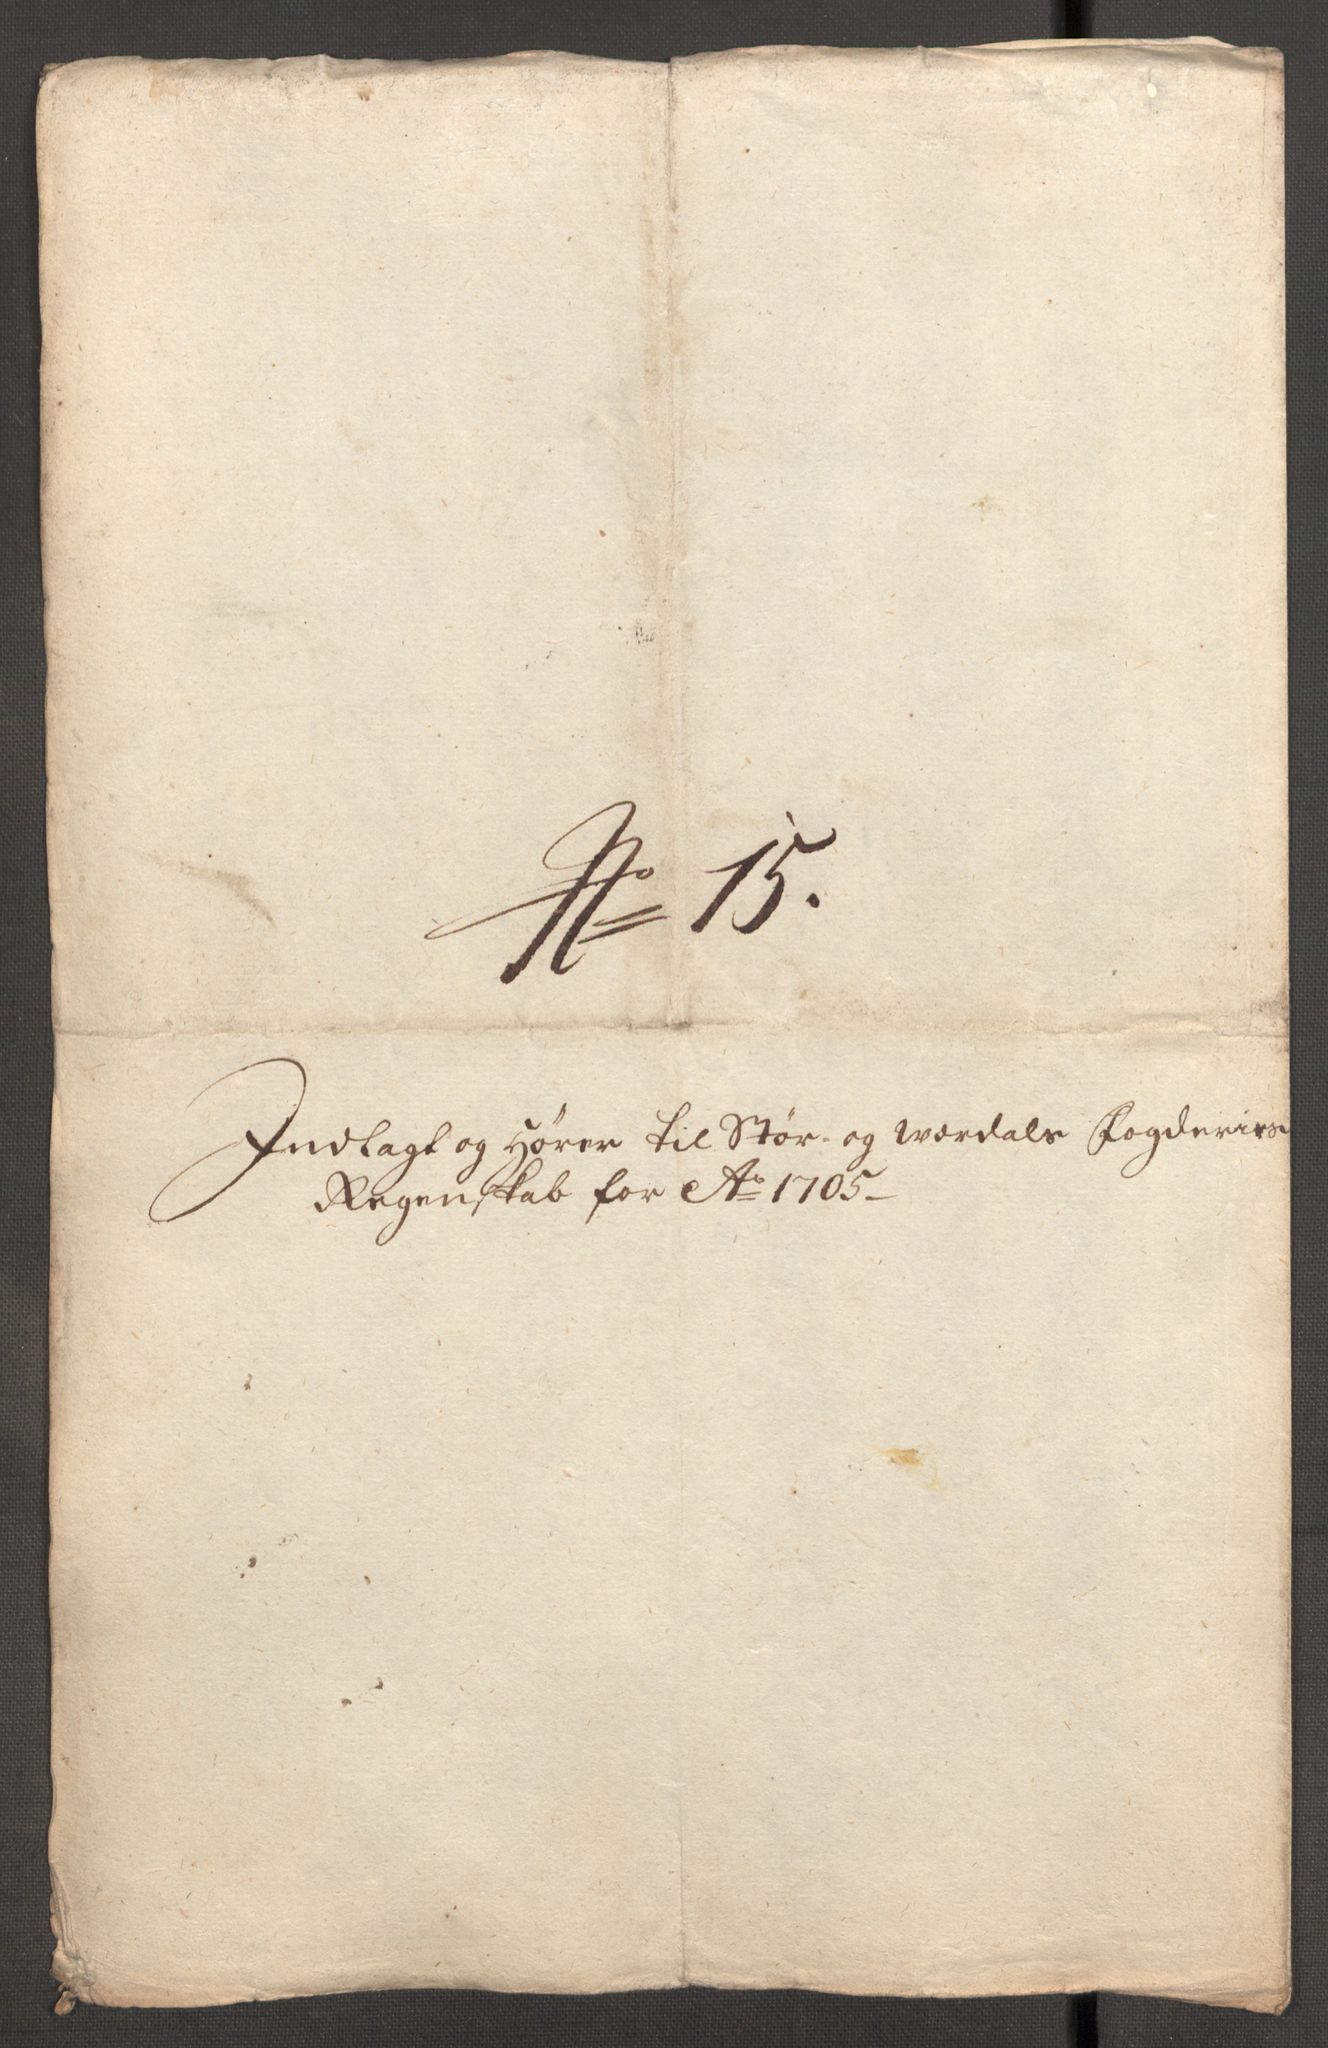 No 15.
Indlagt og Hører til Stør- og Werdals Fogderies
Regenskab for Ao 1705-